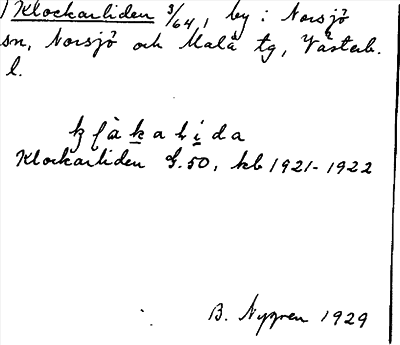 ) Klockarliden 3/64, by i Norsjö
sn, Norsjö och Malå tg, Västerb.
l.
Klockarliden G.50, kb 1921-1922
B. Nygren 1929